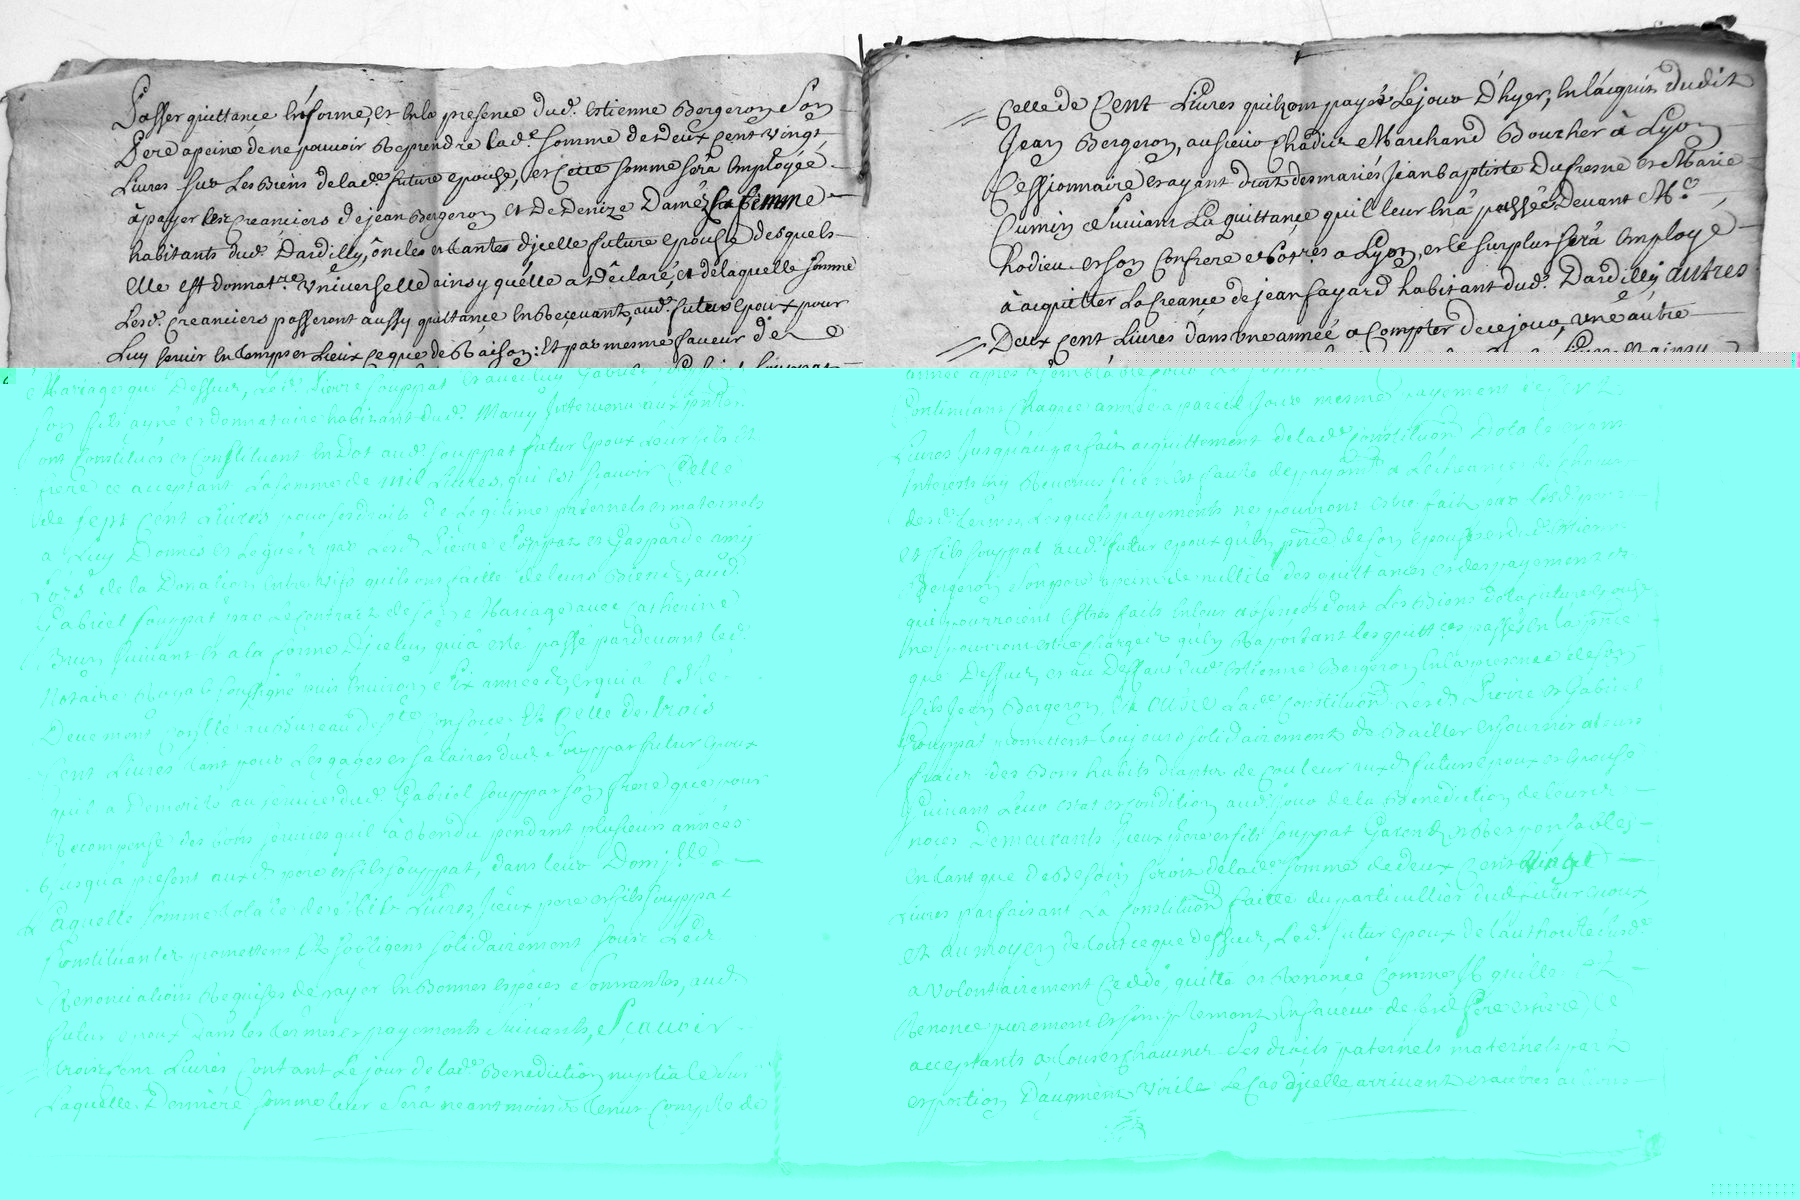 Passer quittançe en forme, et en la presence dud. Estienne Bergeron Son
Pere a peine de ne pouvoir Reprendre lad.e somme de Deux Cent vingt
Livres sur Les Biens de lad.e future epouse, et Cette somme serà Employeé
à payer les Creanciers de jean Bergeron et De Denize Damez sa femme
habitants dud. Dardilly, oncles et tantes d'jcelle future epouse desquels
Elle est donnat.re Universelle ainsy qu'elle a Déclaré, et de laquelle somme
Lesd. Creanciers passeront aussy quittançe En Reçevant, aud. futur epoux pour
Luy servir En temps et Lieux Ce que de Raison: Et par mesme faveur de
Mariage que Dessus, Led. Pierre Souppat et avec luy Gabriel
son fils ayné et donnataire habitant dud. Marcy Intervenu aux p̃ntes
ont Constitués et Constituent En Dot aud. Souppat futur Epoux Leur fils et
frere ce acceptant La somme de mil Livres, qui est sçavoir Celle
de sept Cent Livres pour ses droits de Legitime paternels et maternels
a Luy Donnés et Legués par Lesd. Pierre Souppat et Gasparde amy
Lors de la Donation Entre vifs qu'ils ont faitte de leurs Biens, aud.
Gabriel Souppat par Le Contract de son Mariage avec Catherine
Brun suivant et a la forme D'jceluy qui a esté passé pardevant led.
Notaire Royal soussigné puis Environ six années, et qui a esté
Deuement Con.lle au Bureau de Et Celle de trois
Cent Livres tant pour Les gages et salaires dud. Souppat futur Epoux
qu'il a Demerité au service dud. Gabriel Souppat son frere que pour
Recompense des bons services qu'il a Rendu pendant plusieurs années
Jusqu'à present auxd. pere et fils souppat, dans leur Domi.lle
Laquelle somme totale de mil Livres, jceux pere et fils souppat
Constituants promettent Et s'obligent solidairement sous Les
Renonciations Requises de payer En Bonnes espèces sonnantes, aud.
futur epoux Dans les termes et payements suivants, Sçavoir
trois cent Livres Contant Le jour de lad. Benediction nuptiale sur
Laquelle Derniere somme leur serà neantmoins tenu Compte de
Celle de Cent Livres qu'ils ont payés Le jour D'hyer, En l'acquit dudit
Jean Bergeron, au sieur Chadier Marchand Boucher à Lyon
Cessionnaire et ayant droit des mariés Jean baptiste Dufresne et Marie
Cumin Suivant La quittançe qu'il leur En à passéé Devant M.e
hodieu et son Confrere No.res a Lyon, et le surplus serà Employé
à acquitter La Creançe de jean fayard habitant dud. Dardilly autres
Deux Cent Livres dans une année a Compter de ce jour, une autre
année après
Continuant Chaque année a pareil Jour mesme payement de
Livres Jusqu'au parfait acquittement de lad.e Constitution Dotale
Interests En Revenus si
desd. termes Lesquels payements ne pourront estre faits par lesd. pere
et fils souppat aud. futur epoux qu'En p̃nce de son Epouse et dud. Etienne
Bergeron Son pere a peine de nullité des quittances et des payements
qui pourroient Estres faits En leur absence dont Les Biens de la future Epouse
ne pourront estre Chargés qu'En Raportant les quitt.ces passées En la p̃nce
que Dessus, et au Deffaut dud. Estienne Bergeron En la presence de son
fils Jean Bergeron, Et outre Lad.e Constitution Lesd. Pierre et Gabriel
Souppat promettent toujours solidairement de Bailler et fournir a leurs
fraix des Bons habits Drapts de Couleur auxd. futurs epoux et Epouse
Suivant Leur estat et Condition au jour de la Benediction de leurs
noces Demeurants jceux pere et fils souppat Garends et Responsables
En tant que de Besoin seroit de lad.e somme de deux Cent vingt
Livres parfaisant La Constitution faitte du particullier dud. futur epoux
et au moyen de tout ce que dessus, Led. futur epoux de l'authorité susd.e
a Volontairement Cedde, quitté et Renoncé Comme Il quitte et
Renonce purement et simplement En faveur de sesd. Pere et frere Ce
acceptants a tous et Chacuns Ses droits paternels maternels part
et portion D'augment Virile Le Cas d'jcelle arrivant et autres